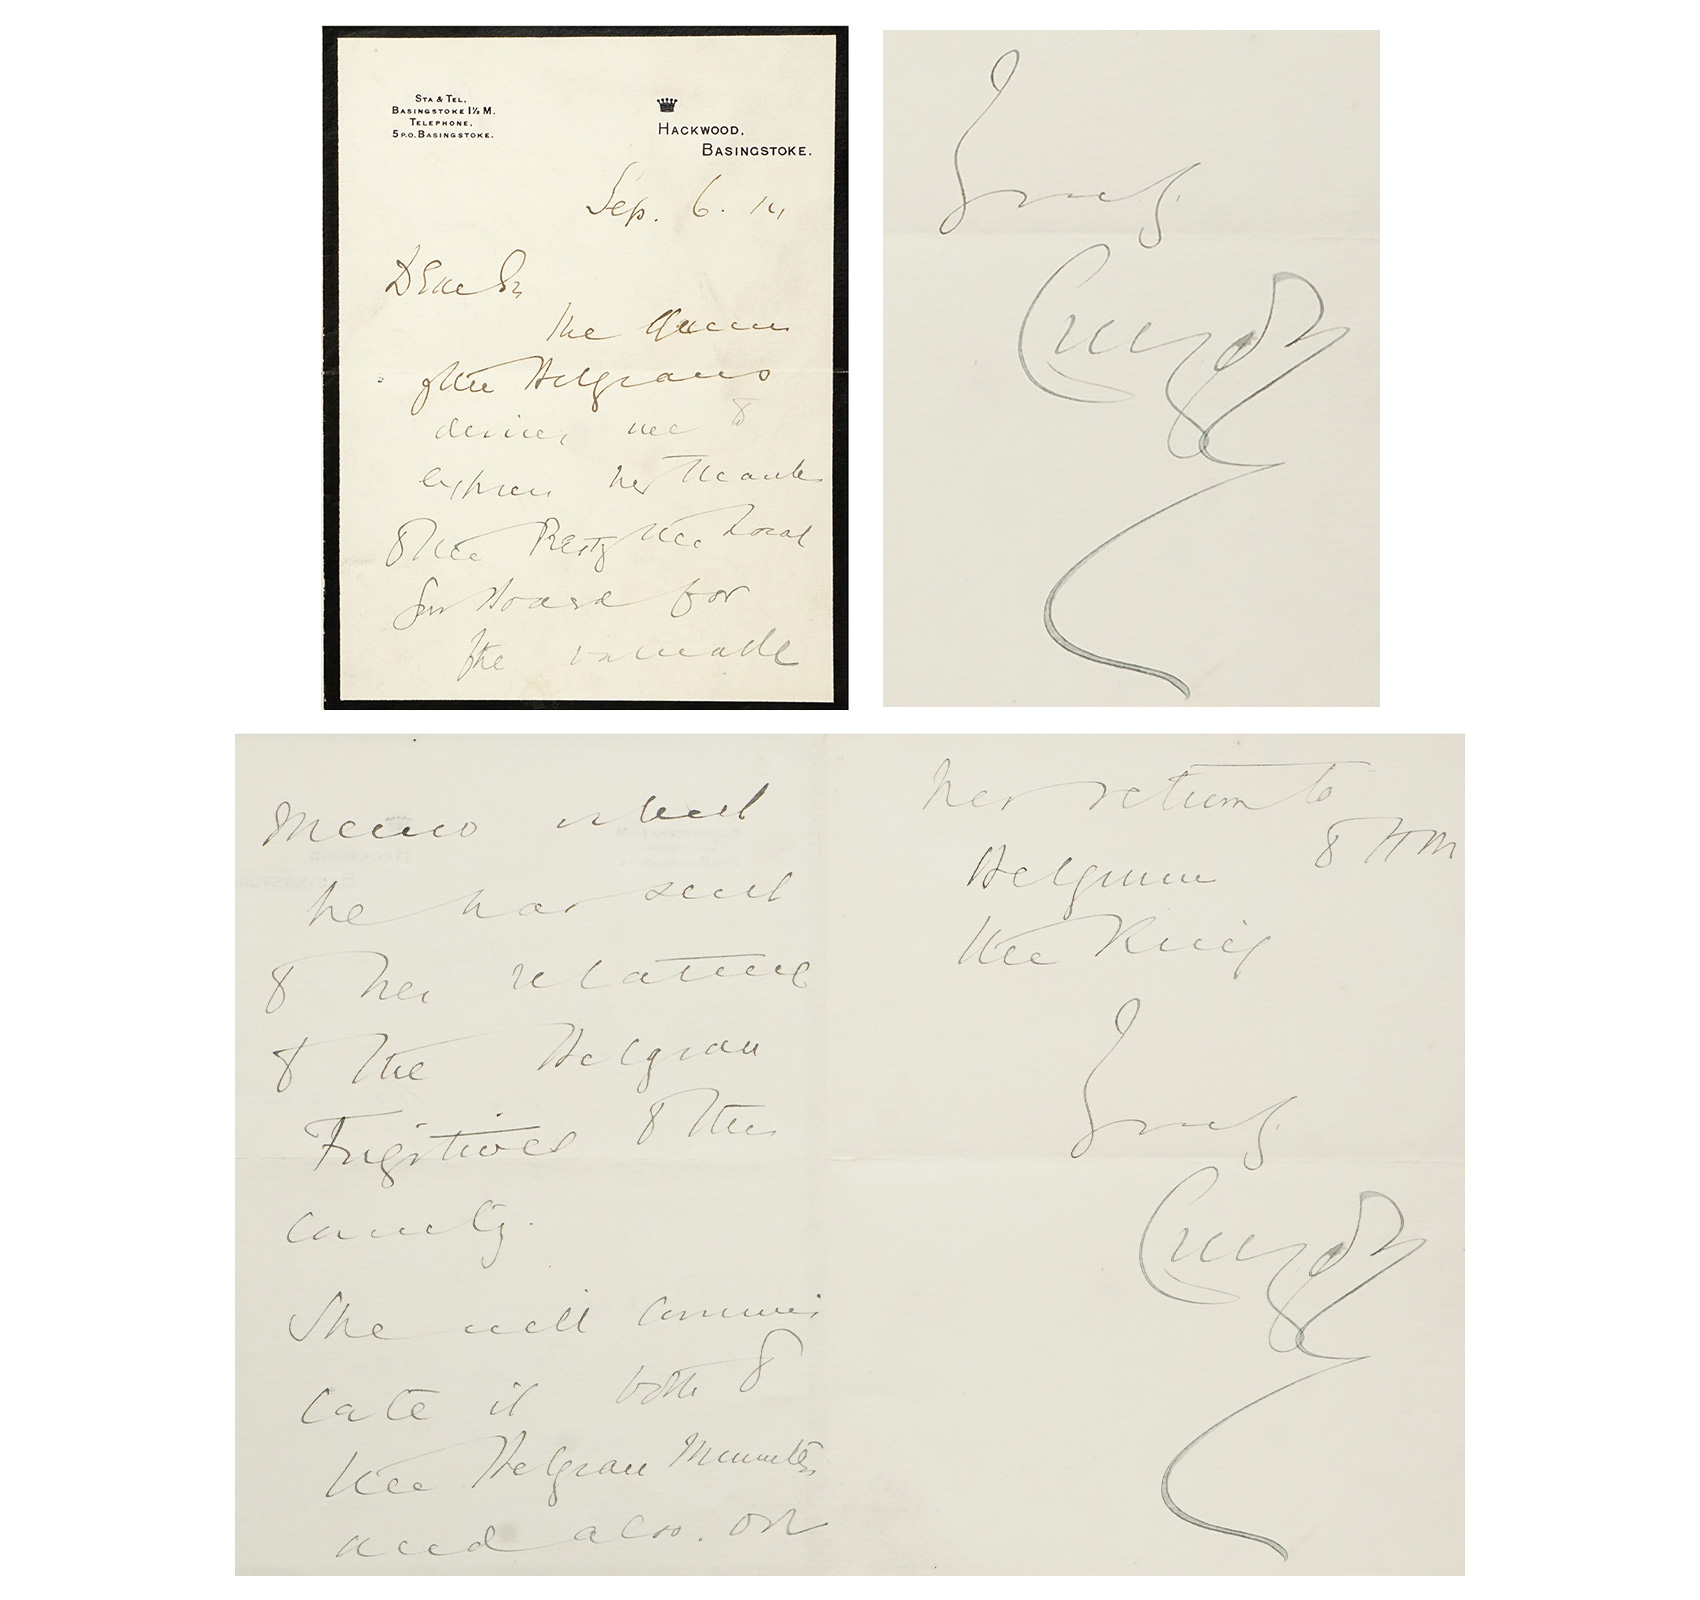 STA & TEL.
BASINGSTOKE 1½ M.
TELEPHONE.
5 P.O. BASINGSTOKE.
HACKWOOD,
BASINGSTOKE.
Sep. 6. 14
Dear Sir
The Queen
of the Belgians
desires me to
express her thanks
to the Prest of the Local
Gov Board for
the valuable
Yours
Curzon
Memo which
he has sent
to her relating
to the Belgian
Fugitives to this
country.
She will communi
cate it both to
the Belgian Minister
and also. on
her return to
Belgium to HM
the King
Yours
Curzon